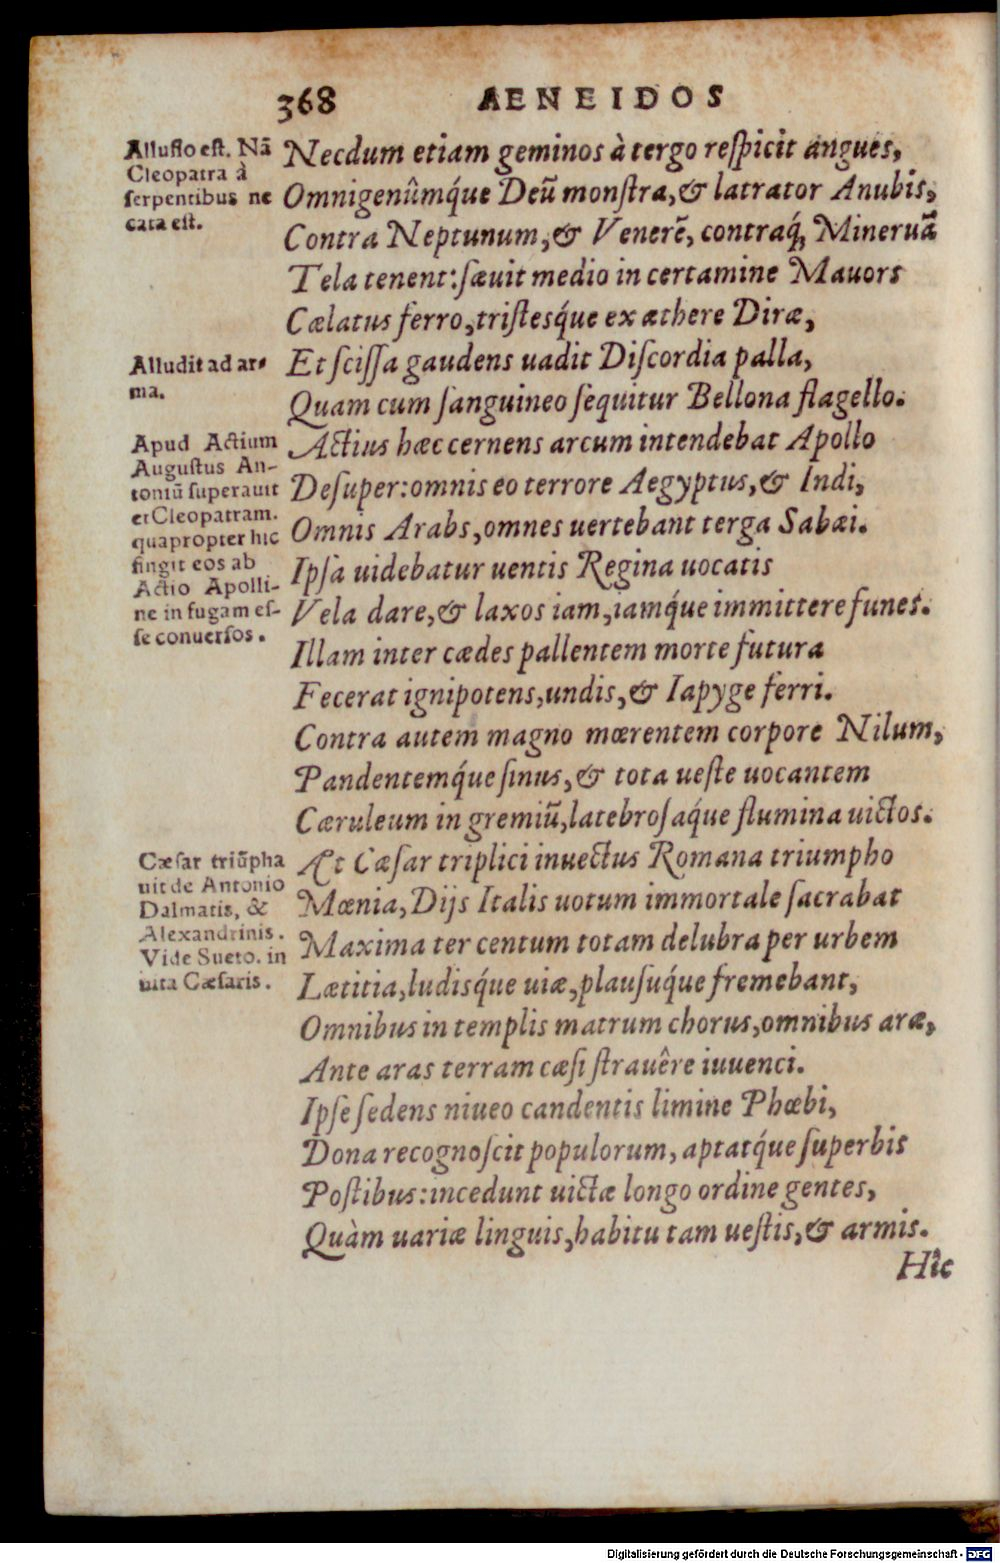 368 AENEIDOS
Allusio est. Nā
Cleopatra à
serpentibus ne
cata est.
Necdum etiam geminos à tergo respicit angues,
Omnigenûmq́ue Deū monstra, & latrator Anubis,
Contra Neptunum, & Venerē, contraq́, Mineruā
Tela tenent: sæuit medio in certamine Mauors
Cælatus ferro, tristesq́ue ex æthere Diræ,
Alludit ad ar-
ma.
Et scissa gaudens uadit Discordia palla,
Quam cum sanguineo sequitur Bellona flagello.
Apud Actium
Augustus An-
toniū superauit
et Cleopatram.
quapropter hic
fingit eos ab
Actio Apolli-
ne in fugam es-
se conuersos.
Actius hæc cernens arcum intendebat Apollo
Desuper: omnis eo terrore Aegyptus, & Indi,
Omnis Arabs, omnes uertebant terga Sabæi.
Ipsa uidebatur uentis Regina uocatis
Vela dare, & laxos iam, iamq́ue immittere funes.
Illam inter cædes pallentem morte futura
Fecerat ignipotens, undis, & Iapyge ferri.
Contra autem magno mœrentem corpore Nilum,
Pandentemq́ue sinus, & tota ueste uocantem
Cæruleum in gremiū, latebrosaq́ue flumina uictos.
Cæsar triūpha
uit de Antonio
Dalmatis, &
Alexandrinis.
Vide Sueto. in
uita Cæsaris.
At Cæsar triplici inuectus Romana triumpho
Mœnia, Dijs Italis uotum immortale sacrabat
Maxima ter centum totam delubra per urbem
Lætitia, ludisq́ue uiæ, plausuq́ue fremebant,
Omnibus in templis matrum chorus, omnibus aræ,
Ante aras terram cæsi strauêre iuuenci.
Ipse sedens niueo candentis limine Phœbi,
Dona recognoscit populorum, aptatq́ue superbis
Postibus: incedunt uictæ longo ordine gentes,
Quàm uariæ linguis, habitu tam uestis, & armis.
Hîc
Digitalisierung gefördert durch die Deutsche Forschungsgemeinschaft - DFG